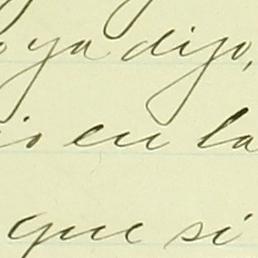 ya dijo,
en la
que si